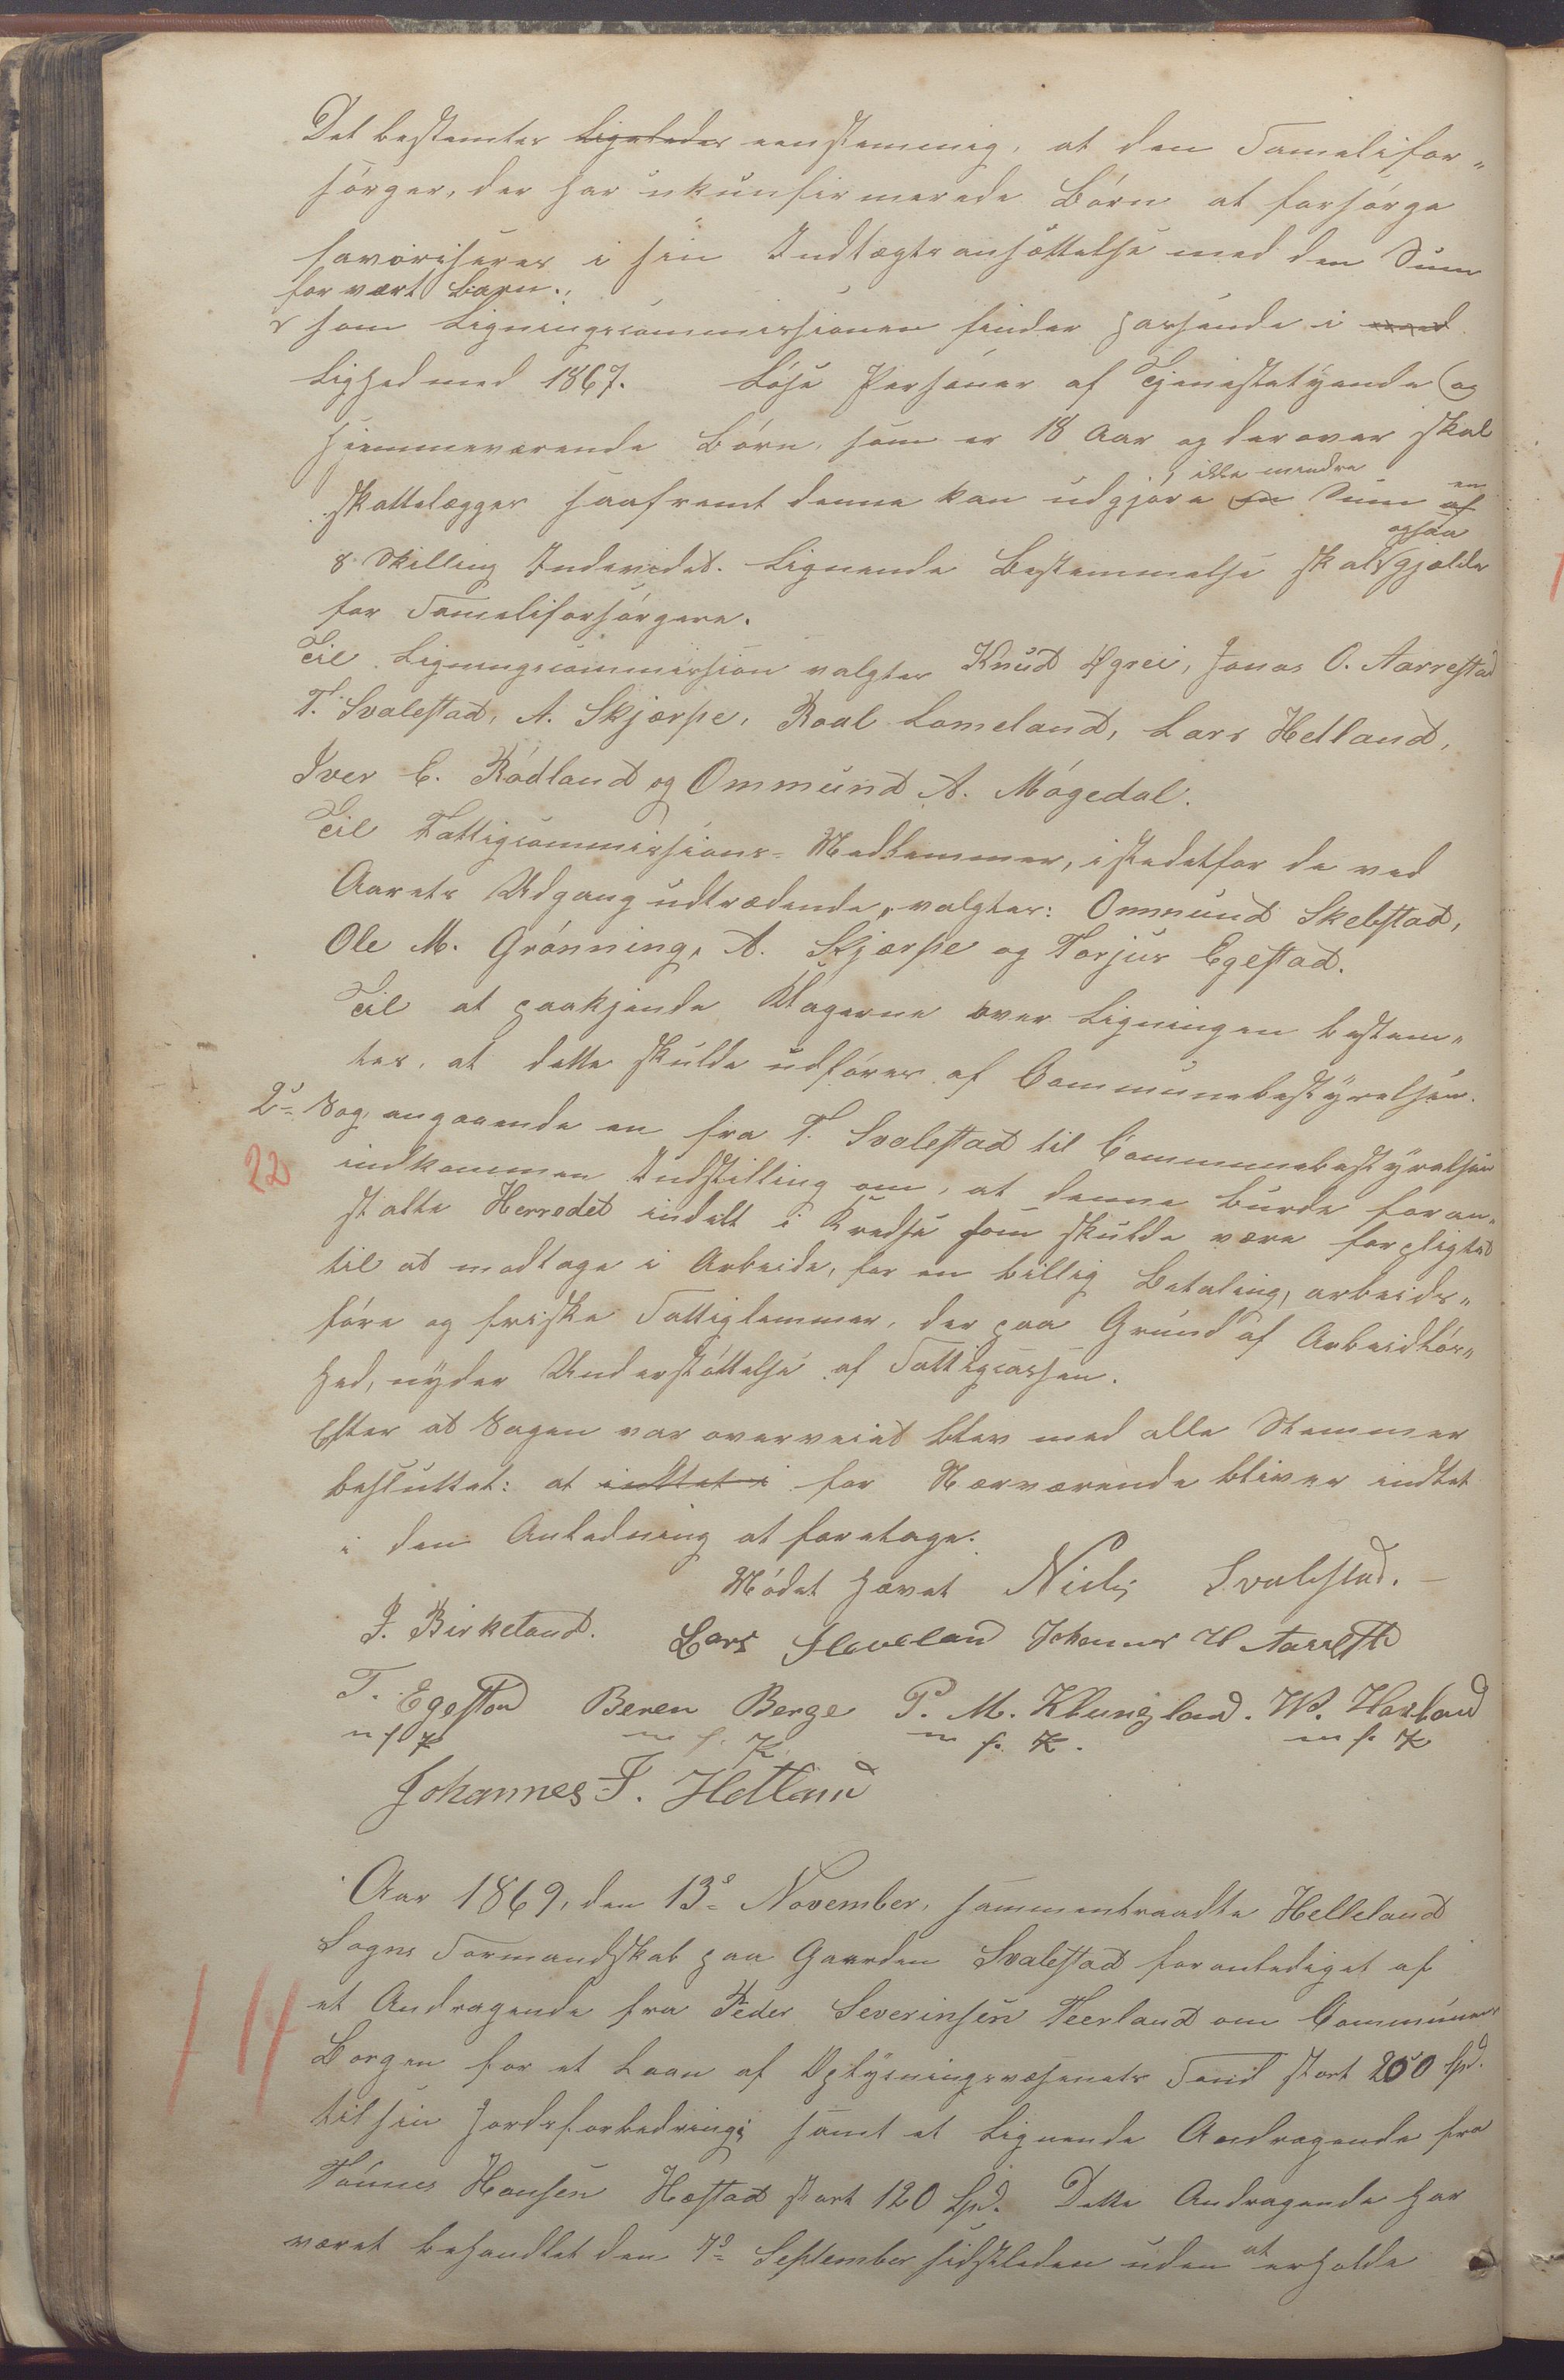 Det bestemtes Ligeledes eenstemmig, at den Familifor-
sörger, der har ukunfirmerede Börn at forsörge
favoriseres i sin Indtægts ansættelse med den Sum
for vært Barn.,
som Ligningscommissionen finder passende i med
Lighed med 1867. Löse Personer af Tjenestetyende og
Hjemmeværende Börn, som er 18 Aar og derover skal
ikke mindre en
skattelægges saafremt denne kan udgjöre en Sum af
ogsaa
8 Skilling Indevidet. Lignende Bestemmelse skal gjælde
for Familiforsörgere.
Til Ligningscommission valgtes Knud Øgrei, Jonas O. Aarrestad
T. Svalestad, A. Skjærpe, Roal Lomeland, Lars Hetland,
Iver E. Rödland og Ommund A. Mögedal.
Til Fattigcommissions-Medlemmer, istedetfor de ved
Aarets Udgang udtrædende, valgtes: Ommund Skelstad,
Ole M. Grönning, A. Skjærpe og Torjus Egestad.
Til at paakjende Klagerne over Ligningen bestem-
tes, at dette skulde udföres af Communebestyrelsen.
2= Sag, angaaende en fra T. Svalestad til Communebestyrelsen
22
indkommen Indstilling om, at denne burde foran-
stalte Herredet indelt i Kredse som skulde være forpligtet
til at modtage i Arbeide, for en billig Betaling, arbeids-
före og friske Fattiglemmer, der paa Grund af Arbeidlös-
hed, nyder Understöttelse af Fattigcassen.
Efter at Sagen var overveiet blev med alle Stemmer
besluttet: at indtet i for Nærværende bliver indtet
i den Anledning at foretage.
Mödet hævet Niels Svalestad.
J. Birkeland. Lars Slevelan Johannes H Aarrestd
T. Egestad Beren Berge P. M. Klungland. W. Havland
m f P m f. P. m f. P. m f. P
Johannes J. Hetland
Aar 1869, den 13= November, sammentraadte Helleland
Sogns Formandskab paa Gaarden Svalestad foranlediget af
114
et Andragende fra Peder Severinsen Teerland om Communens
Borgen for et Laan af Oplysningsvæsenets Fond stort 200 Spd.
til sin Jordsforbedring; samt et Lignende Andragende fra
Tönnes Hansen Hæstad stort 120 Spd. Dette Andragende har
været behandlet den 7= September sidstleden uden at erholde